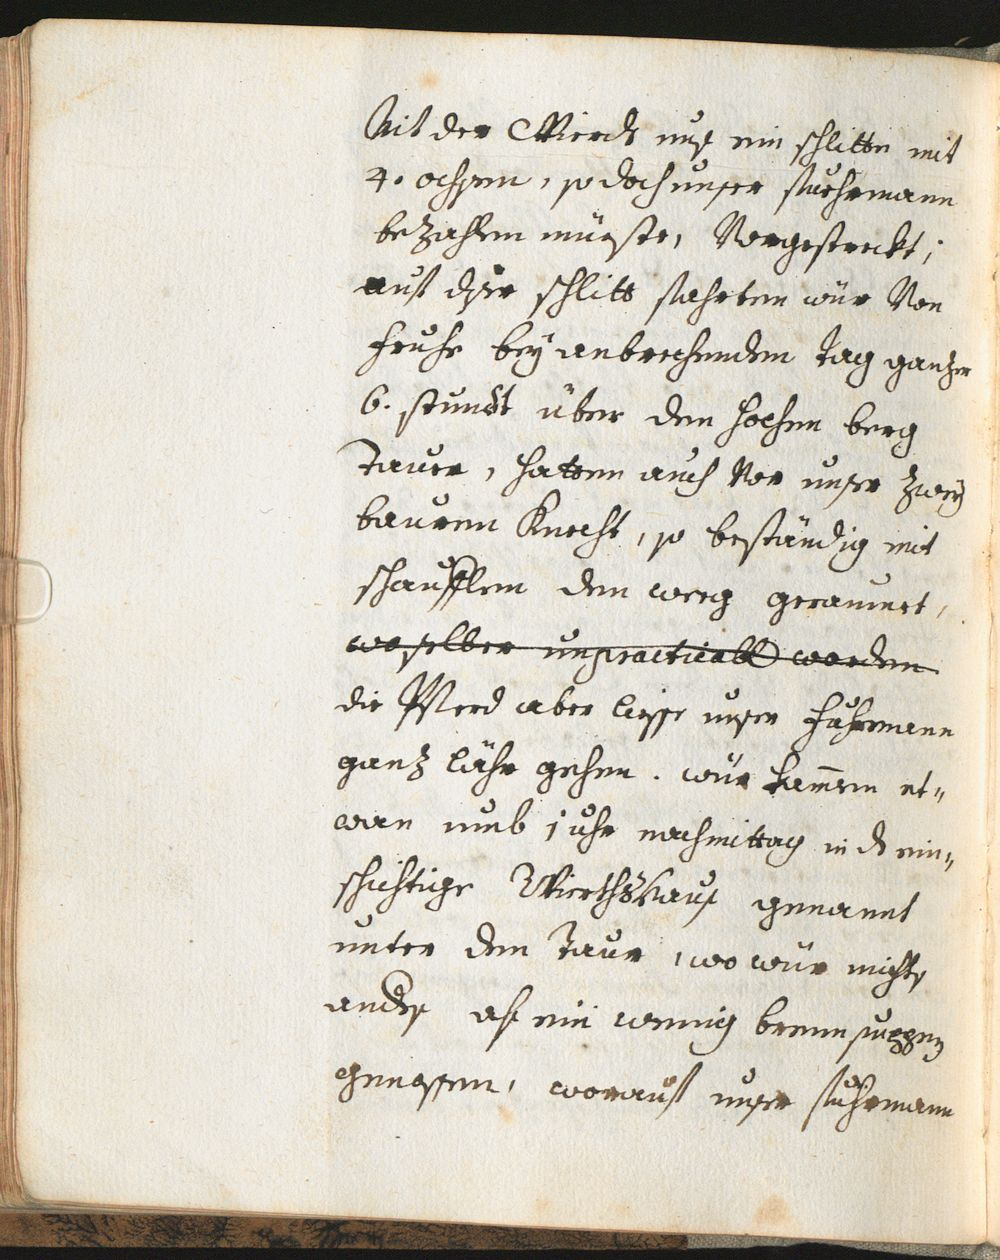 Mit der Wierth unß ein schlitten mit
4. ochsen, so doch unser fuehrmann
bezahlen mueste, Vorgestreckt;
auf dser schlitt fuhrten wür Von
fruhe beÿ anbrechendem tag ganzer
6. stundt über den hochen berg
Taurn, hatten auch Vor unser zweÿ
bauren Knecht, so beständig mit
schaufflen den weeg geraumet,
woselber unpracticabl worden
die Pferd aber liesse unser fuhrmann
ganz lähr gehen. wür kam̄en et=
wan umb 1 uhr nachmittag in ds ein=
schichtige Wierthshauß genannt
unter dem Taurn, wo wür nichts
anders als ein wennig brennsuppen
genossen, worauf unser fuhrmann